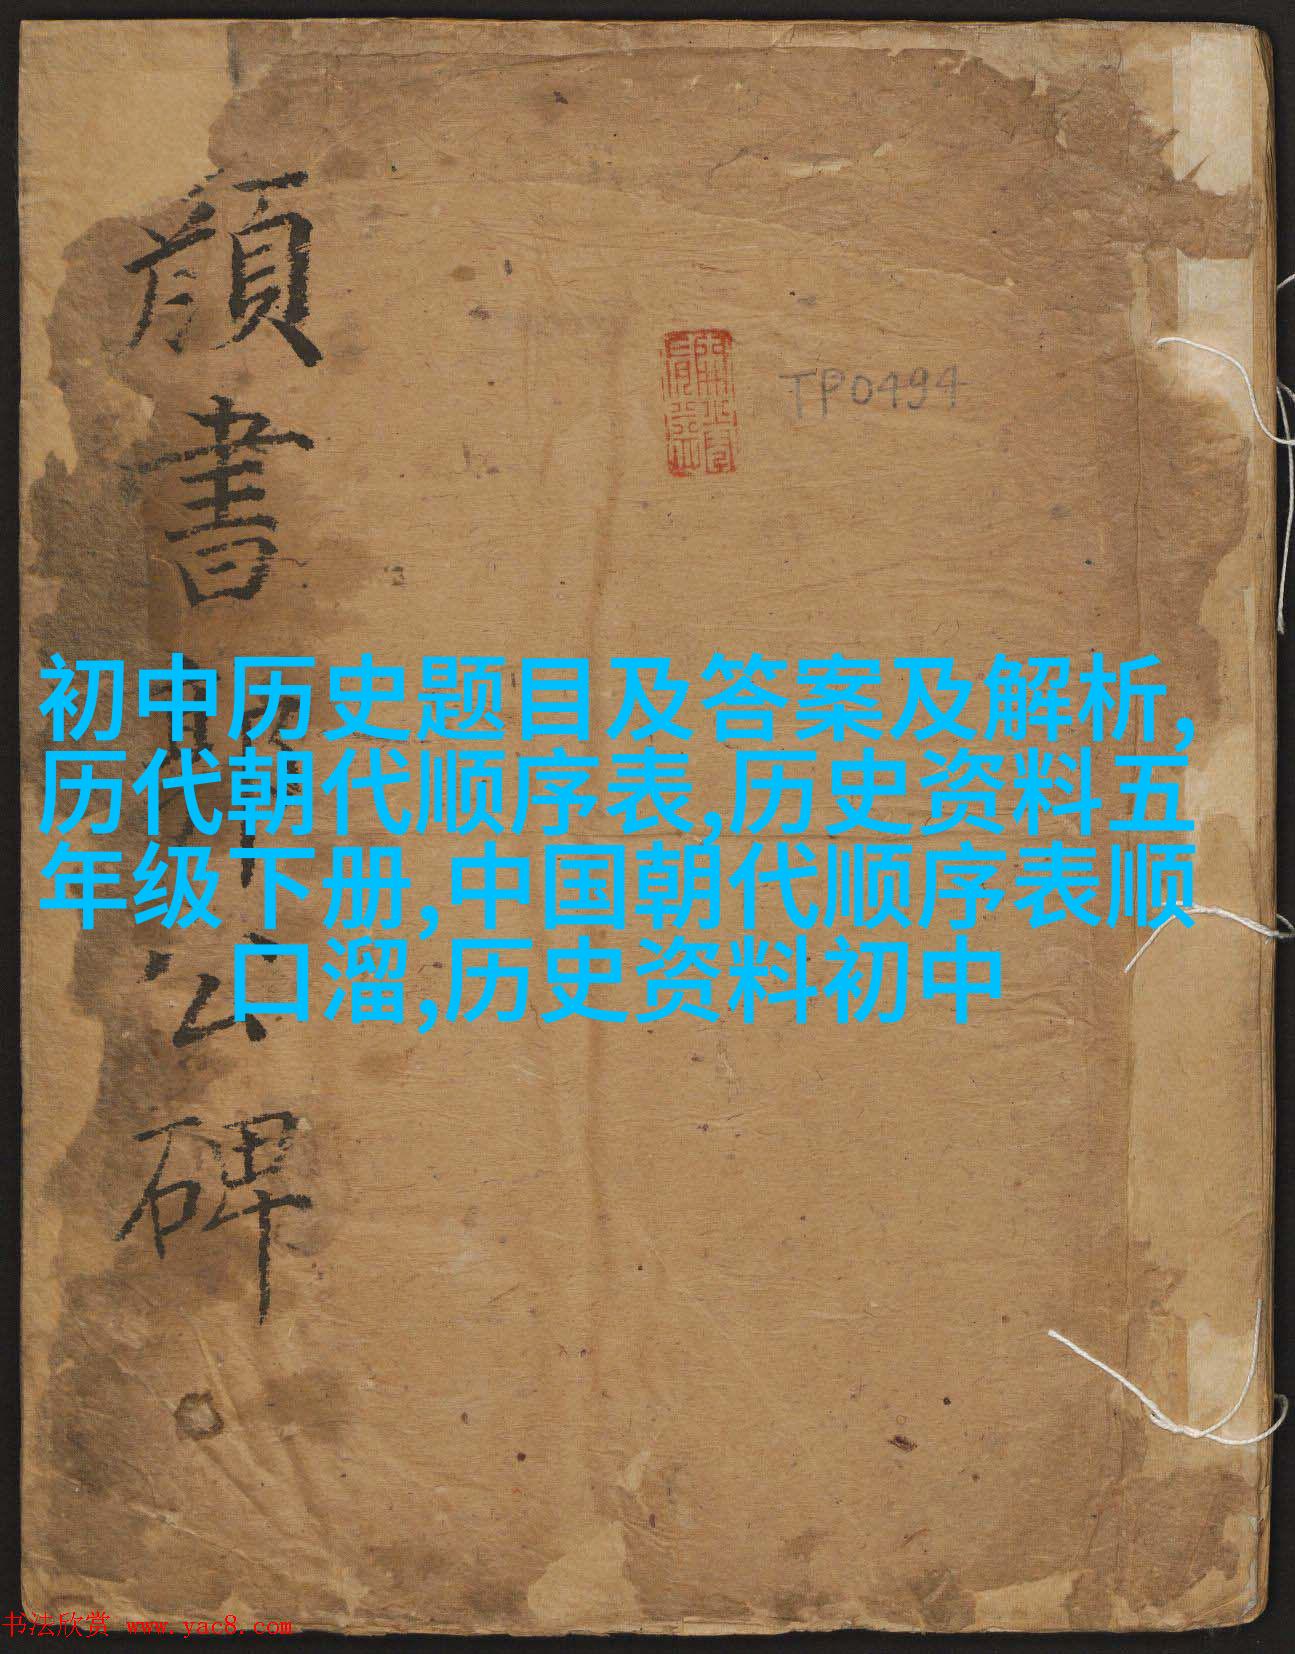 顔書
公碑
TP0494
初中历史题目及答案及解析,
历代朝代顺序表,历史资料五
年级下册,中国朝代顺序表顺
口溜,历史资料初中
书法欣赏 www.yac8.com